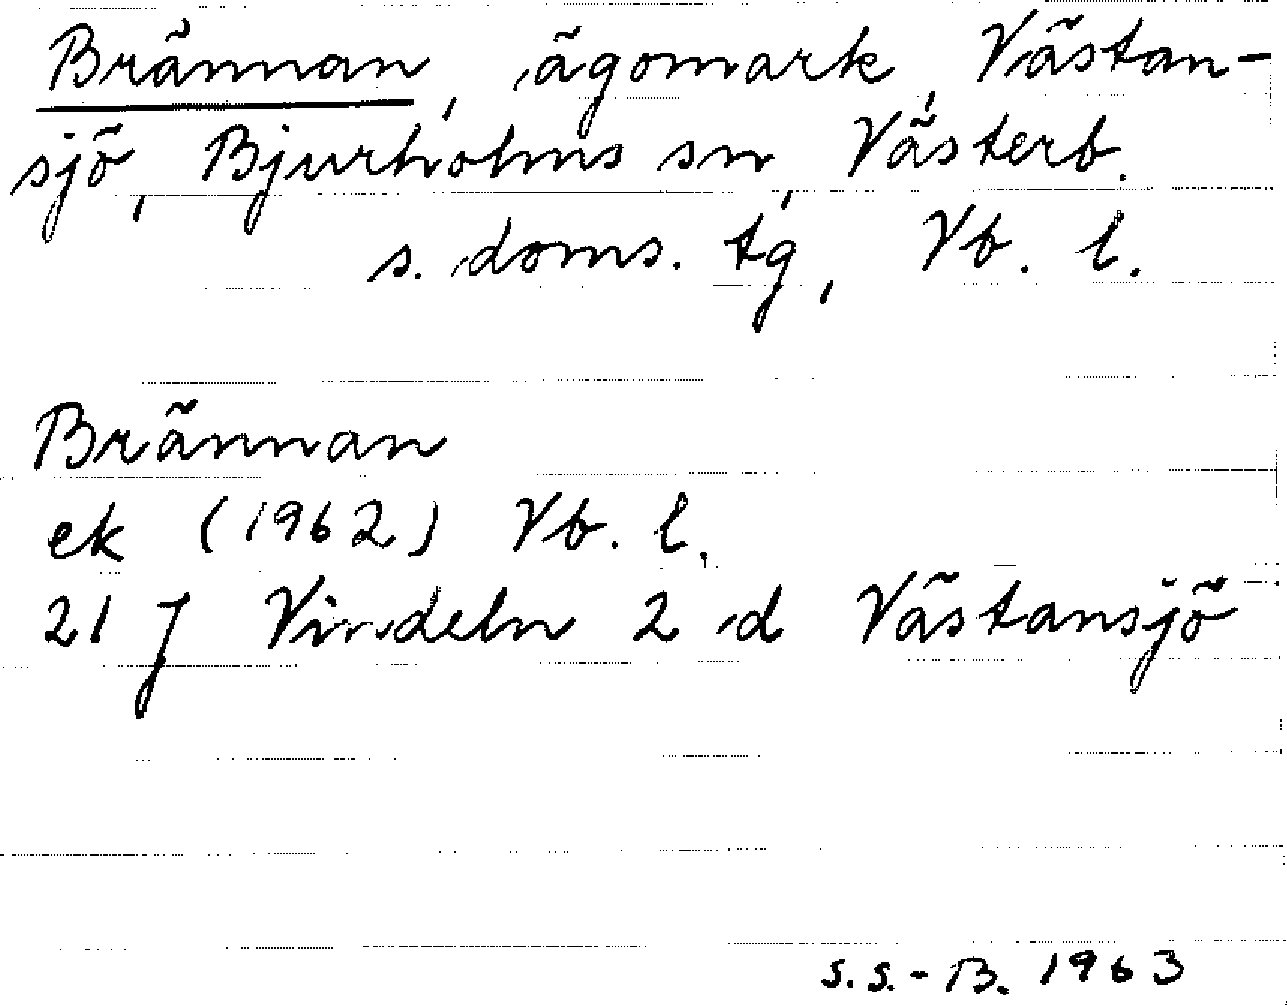 Brännan, ägomark, Västan-
sjö, Bjurholms sn, Västerb.
s. doms. tg, Vb. l.
Brännan
ek (1962) Vb. l.
21 J Vindeln 2 d Västansjö
S.S.-B. 1963